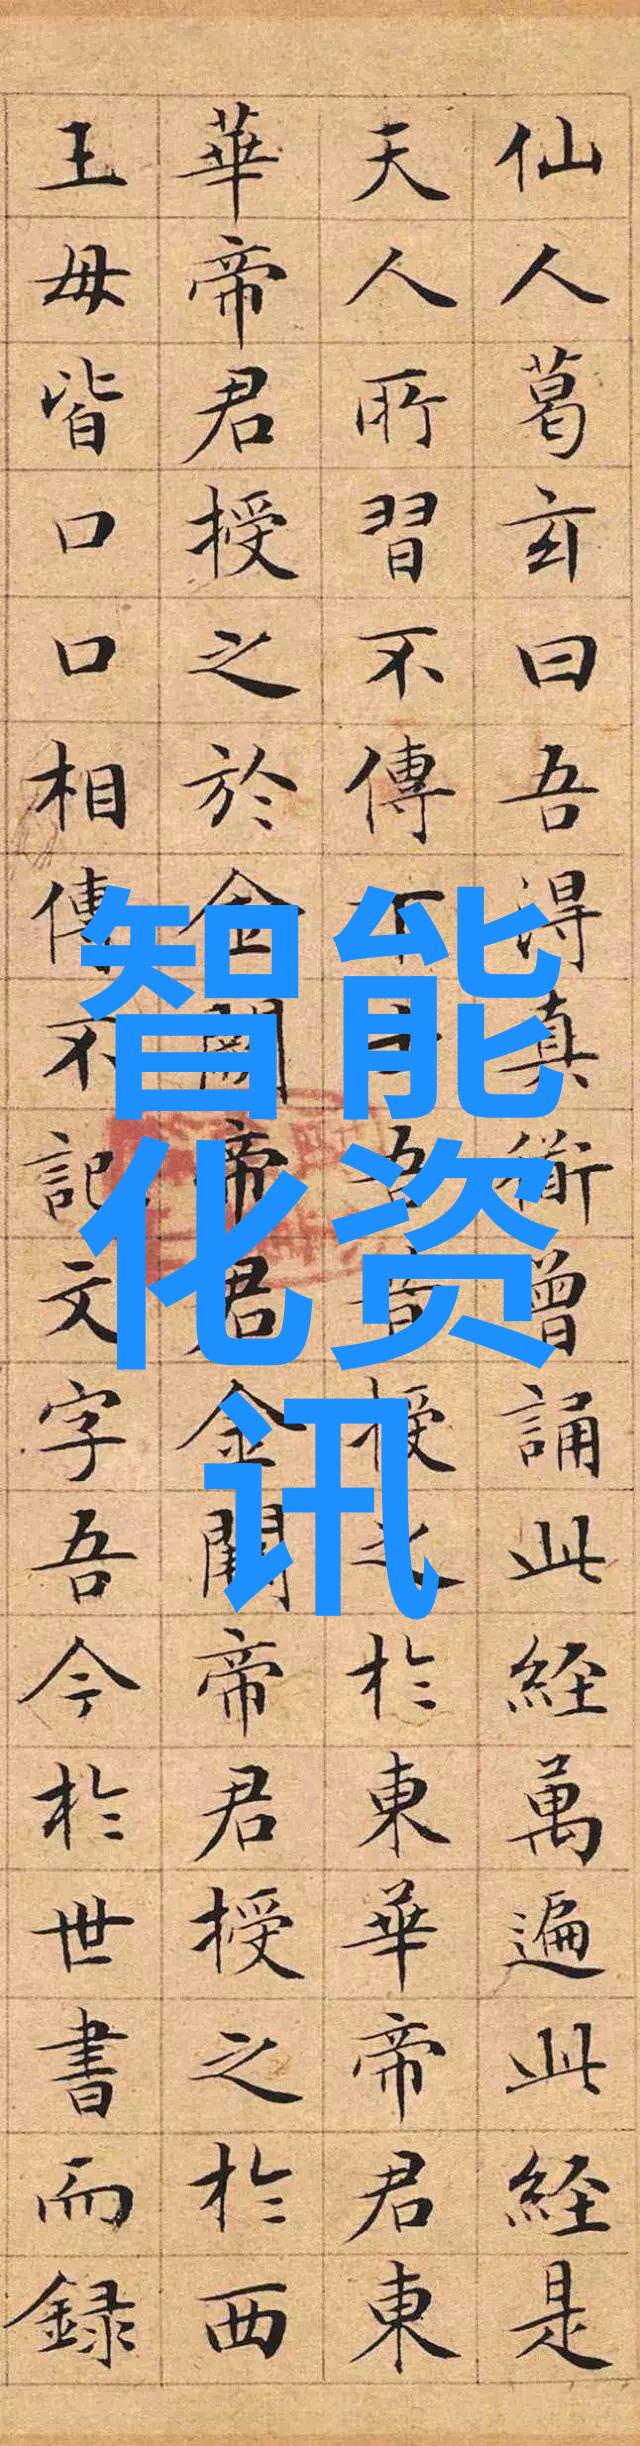 仙人葛玄曰吾得真衜曾誦此経萬遍此経是
天人所習不傳下士吾昔授之於東華帝君東
華帝君授之於金闕帝君金闕帝君授之於西
王母皆口口相傳不記文字吾今於世書而録
智能
化资
讯